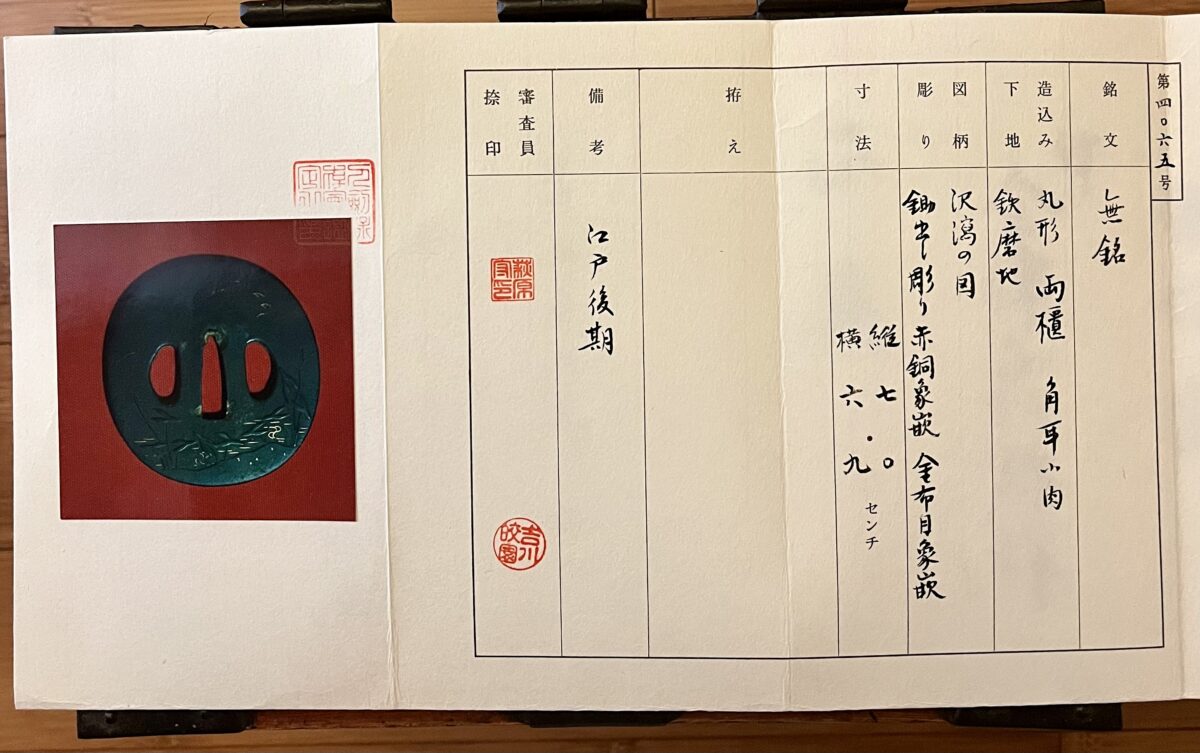 第四〇六五号
銘文
無銘
造込み
下地
丸形 両櫃 角耳小肉
鉄磨地
図柄
彫り
沢瀉の図
鋤出し彫り 赤銅象嵌 金布目象嵌
寸法
縦 七・〇
横 六・九
センチ
拵え
備考
江戸後期
審査員
捺印
萩原
守印
吉川
皎園